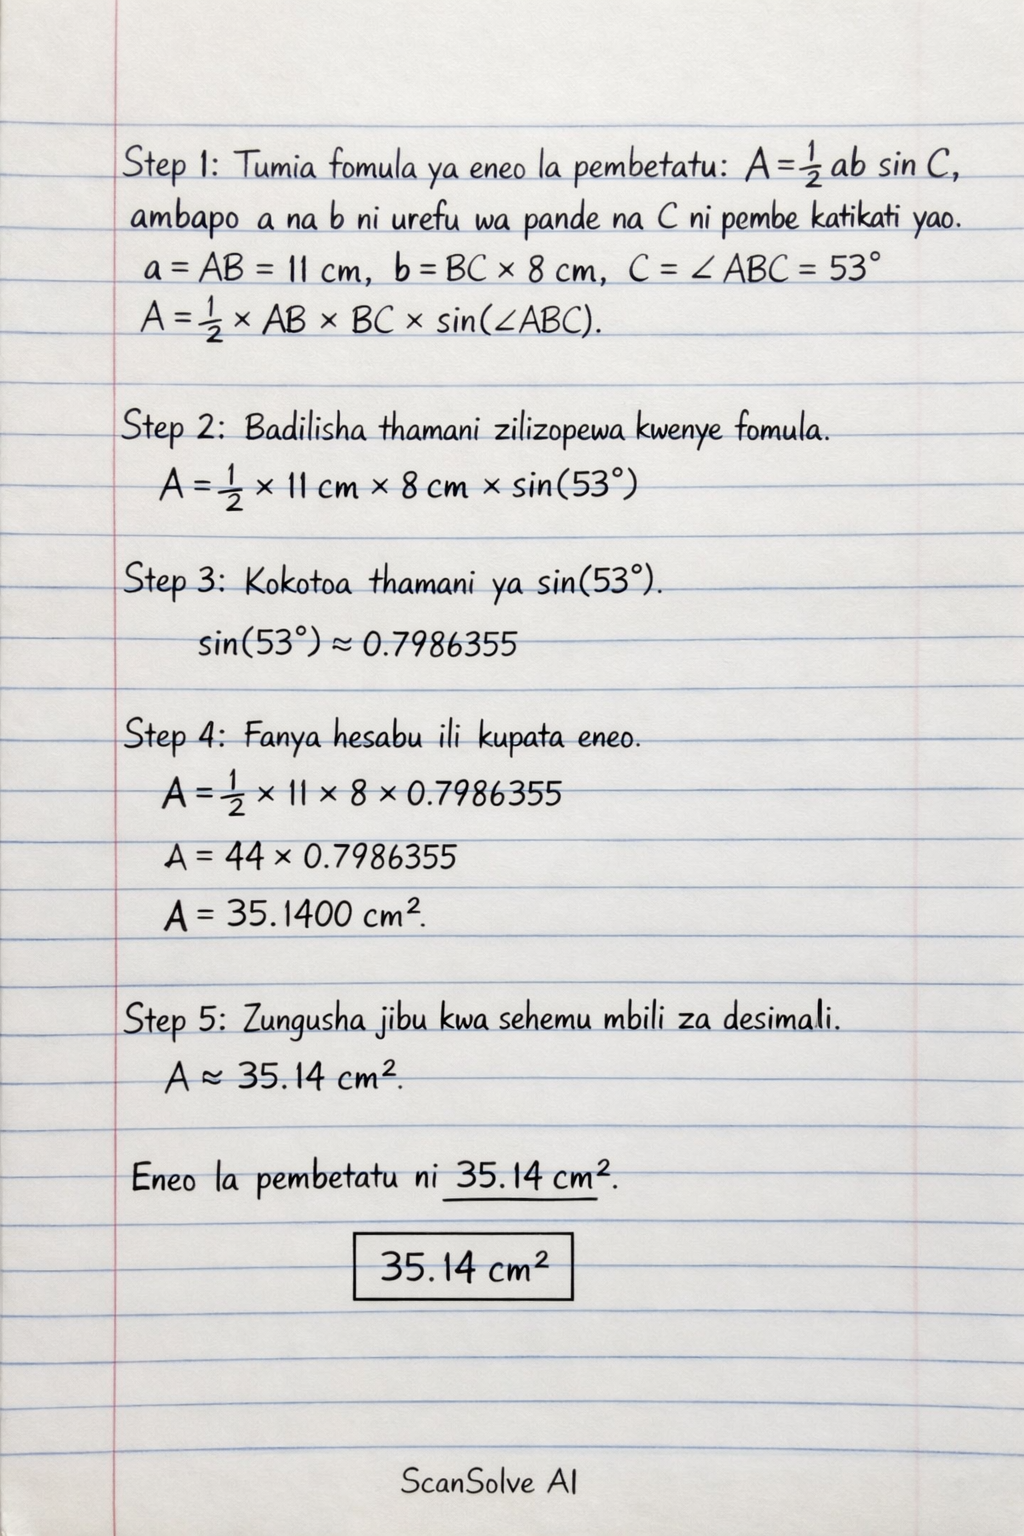 Step 1: Tumia fomula ya eneo la pembetatu: A = 1/2 ab sin C,
ambapo a na b ni urefu wa pande na C ni pembe katikati yao.
a = AB = 11 cm, b = BC × 8 cm, C = ∠ ABC = 53°
A = 1/2 × AB × BC × sin(∠ABC).
Step 2: Badilisha thamani zilizopewa kwenye fomula.
A = 1/2 × 11 cm × 8 cm × sin(53°)
Step 3: Kokotoa thamani ya sin(53°).
sin(53°) ≈ 0.7986355
Step 4: Fanya hesabu ili kupata eneo.
A = 1/2 × 11 × 8 × 0.7986355
A = 44 × 0.7986355
A = 35.1400 cm².
Step 5: Zungusha jibu kwa sehemu mbili za desimali.
A ≈ 35.14 cm².
Eneo la pembetatu ni 35.14 cm².
35.14 cm²
ScanSolve AI